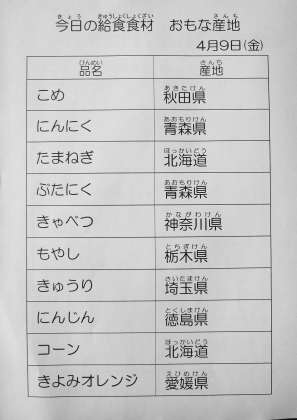 今日の給食食材　おもな産地
4月9日(金)
品名　産地
こめ　秋田県
にんにく　青森県
たまねぎ　北海道
ぶたにく　青森県
きゃべつ　神奈川県
もやし　栃木県
きゅうり　埼玉県
にんじん　徳島県
コーン　北海道
きよみオレンジ　愛媛県